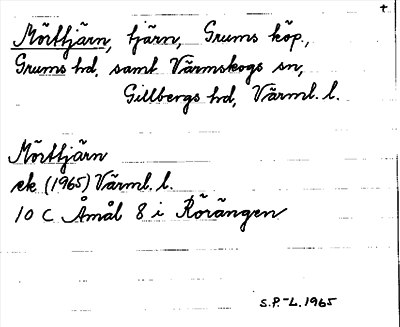 +
Mörttjärn, tjärn, Grums köp.,
Grums hd, samt Värmskogs sn,
Gillbergs hd, Värml. l.
Mörttjärn
ek (1965) Värml. l.
10 C Åmål 8 i Rörängen
S.P.-L. 1965